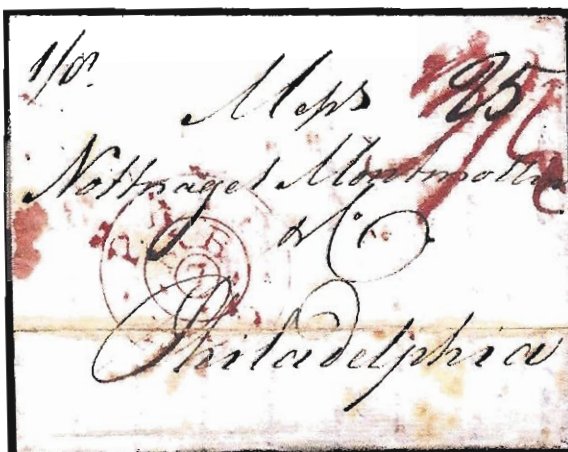 1/8
Messrs 25
Nottnagel Montmollin
& Co.
Philadelphia